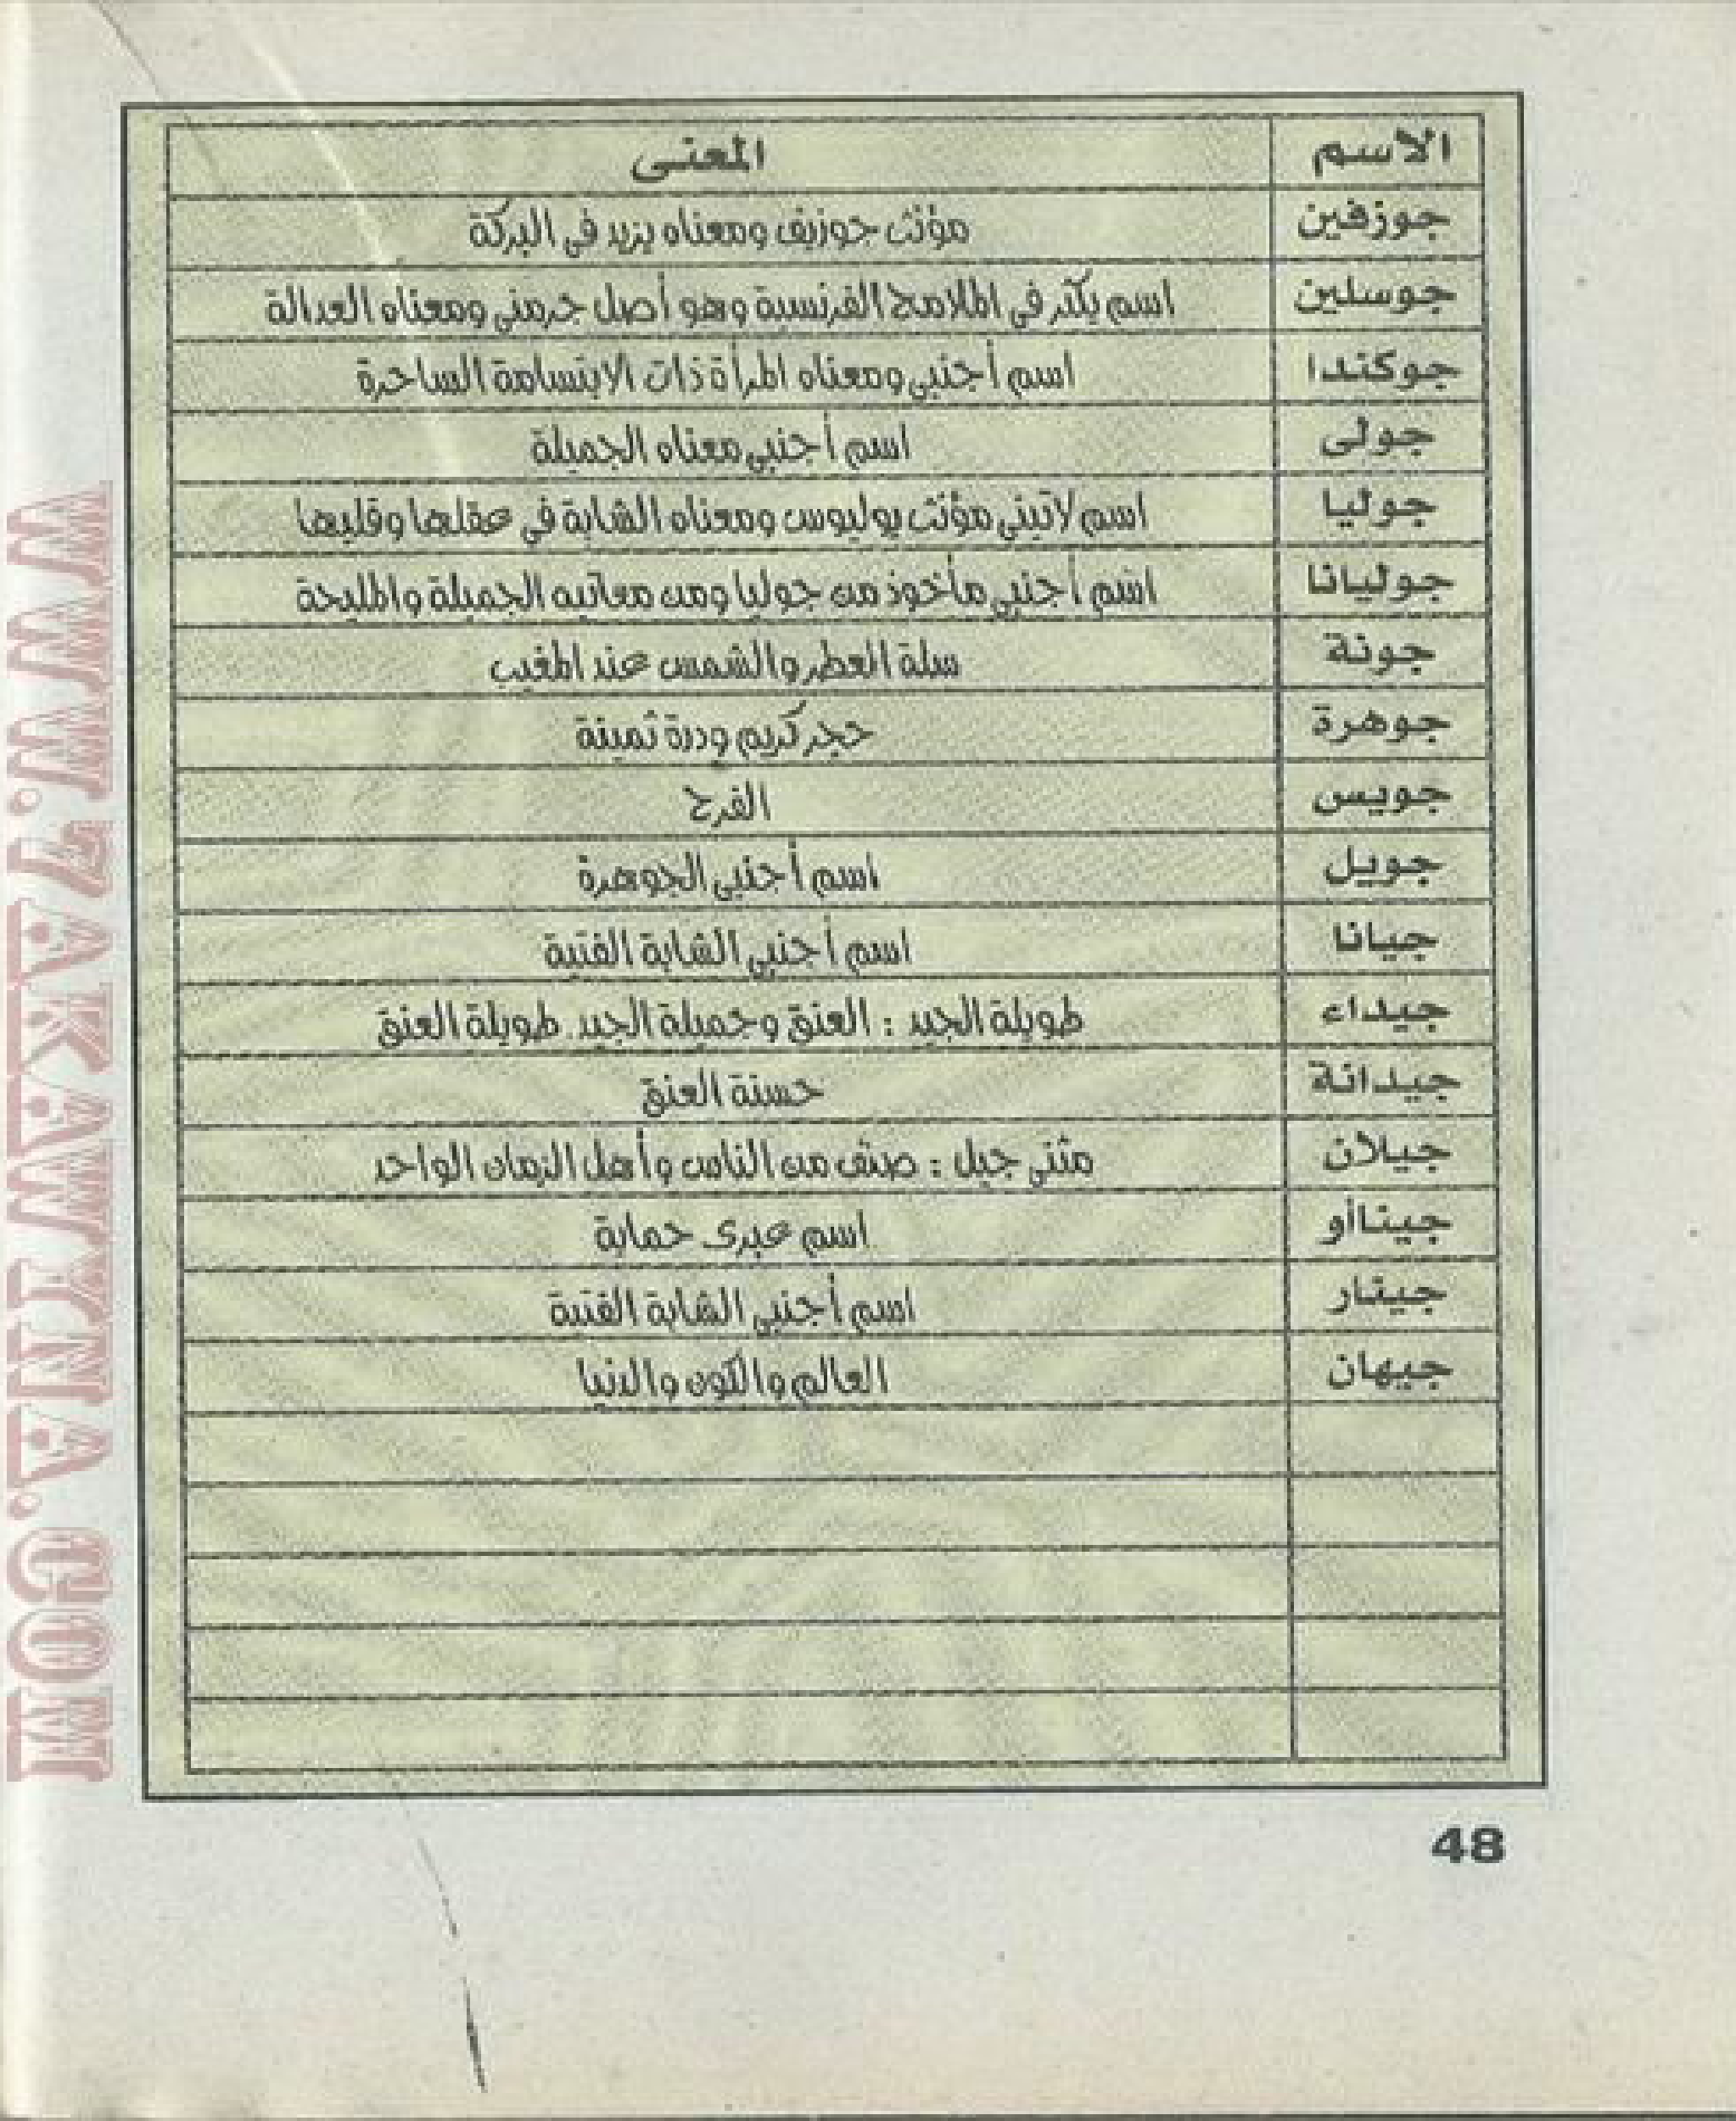 الاسم المعنى
جوزفين مؤنث جوزيف ومعناه يزيد فى البركة
جوسلين اسم يكثر فى الملامح الفرنسية وهو أصل جرمنى ومعناه العدالة
جوكندا اسم أجنبى ومعناه المرأة ذات الابتسامة الساحرة
جولى اسم أجنبى معناه الجميلة
جوليا اسم لاتينى مؤنث يوليوس ومعناه الشابة فى عقلها وقلبها
جوليانا اسم أجنبى مأخوذ من جوليا ومن معانيه الجميلة والمليحة
جونة سلة العطر والشمس عند المغيب
جوهرة حجر كريم ودرة ثمينة
جويس الفرح
جويل اسم أجنبى الجوهرة
جيانا اسم أجنبى الشابة الفتية
جيداء طويلة الجيد : العنق وجميلة الجيد. طويلة العنق
جيدانة حسنة العنق
جيلان مثنى جيل : صنف من الناس وأهل الزمان الواحد
جيناأو اسم عبرى حماية
جيتار اسم أجنبى الشابة الفتية
جيهان العالم والكون والدنيا
48
WWW.7AKAWYNA.COM